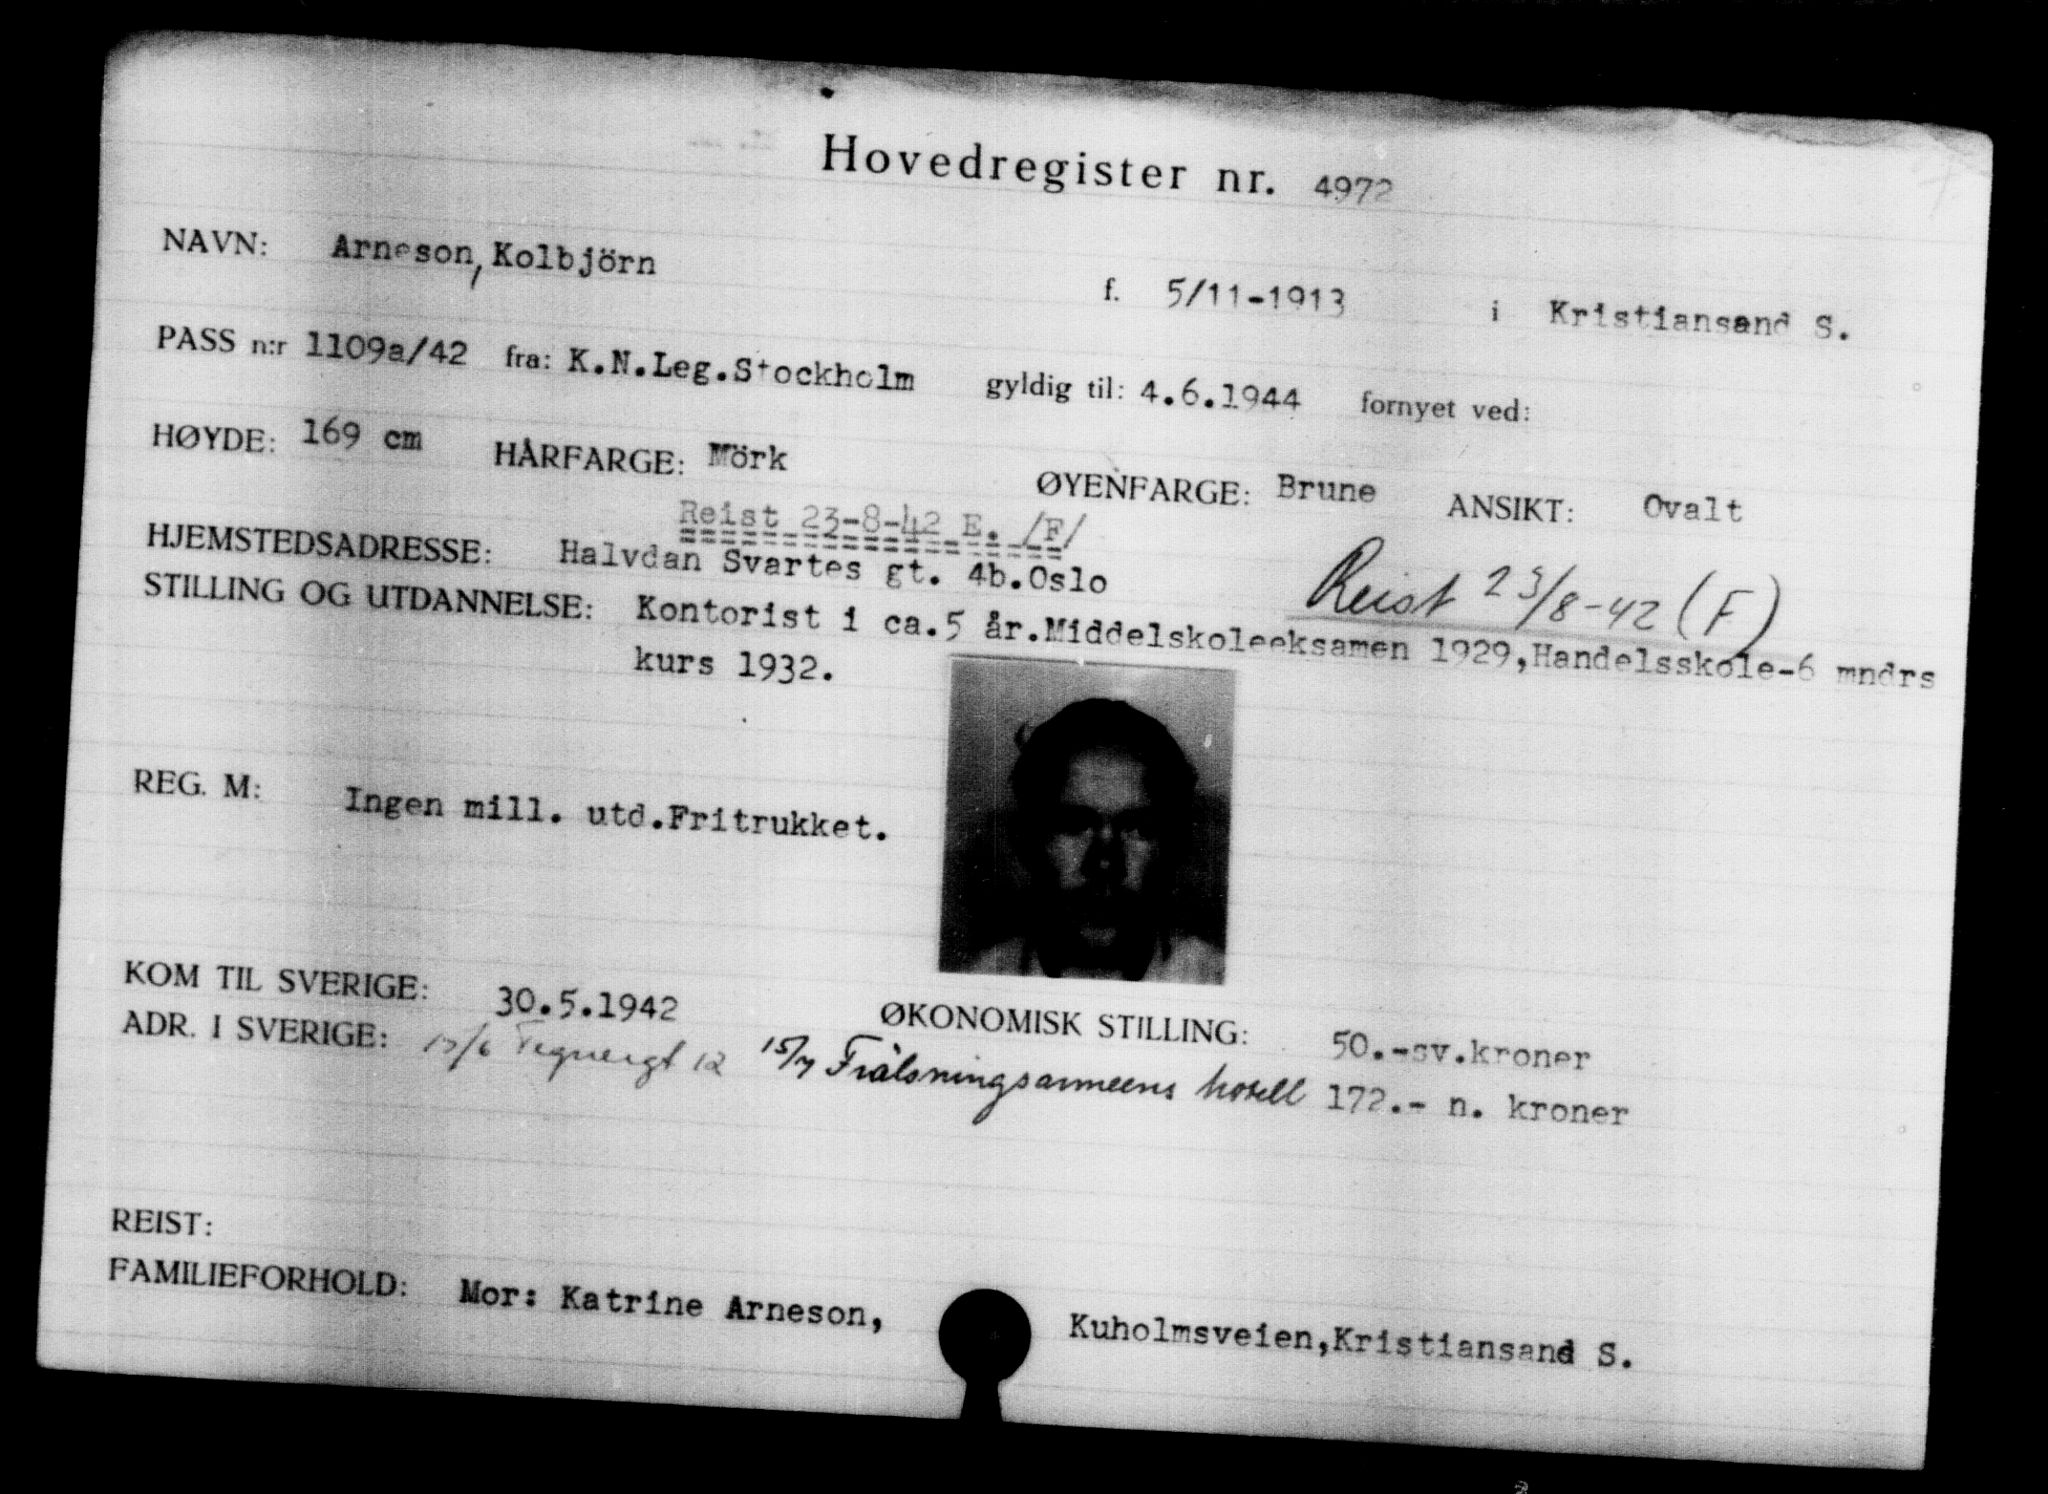 Hovedregister nr. 4972
NAVN: Arneson, Kolbjörn f. 5/11-1913 i Kristiansand S.
PASS n:r 1109a/42 fra: K.N.Leg.Stockholm gyldig til: 4.6.1944 fornyet ved:
HØYDE: 169 cm HÅRFARGE: Mörk ØYENFARGE: Brune ANSIKT: Ovalt
Reist 23-8-42 E. /F/
HJEMSTEDSADRESSE: Halvdan Svartes gt. 4b.Oslo
Reist 23/8-42 (F)
STILLING OG UTDANNELSE: Kontorist i ca.5 år.Middelskoleeksamen 1929,Handelsskole-6 mndrs
kurs 1932.
REG. M: Ingen mill. utd.Fritrukket.
KOM TIL SVERIGE: 30.5.1942 ØKONOMISK STILLING: 50.-sv.kroner
ADR. I SVERIGE: Tegnergt 12 15/7 Frälsningsarmeens hotell 172.- n. kroner
REIST:
FAMILIEFORHOLD: Mor: Katrine Arneson, Kuholmsveien,Kristiansand S.